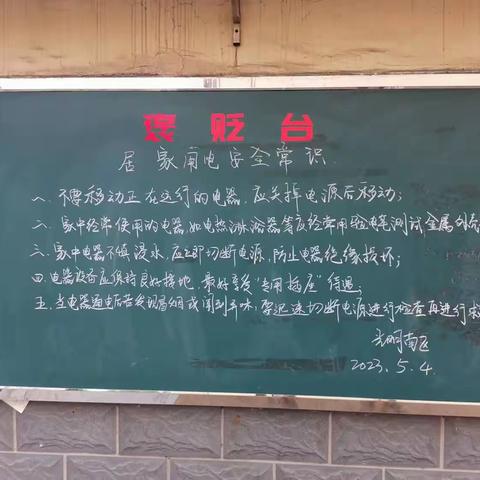 褒贬台
居家用电安全常识
一、不要移动正在运行的电器，应关掉电源后移动；
二、家中经常使用的电器如电热淋浴器等应经常用验电笔测试金属外
三、家中电器不慎浸水，应立即切断电源，防止电器绝缘损坏；
四、电器设备应保持良好接地，最好享受“专用插座”待遇；
五、当电器通电后若发现冒烟或闻到异味，要迅速切断电源进行检查再进行
光明南区
2023.5.4.